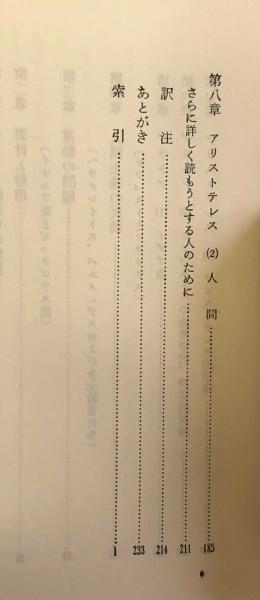 第八章 アリストテレス (2) 人間……185
さらに詳しく読もうとする人のために……211
訳注……214
あとがき……233
索引……1